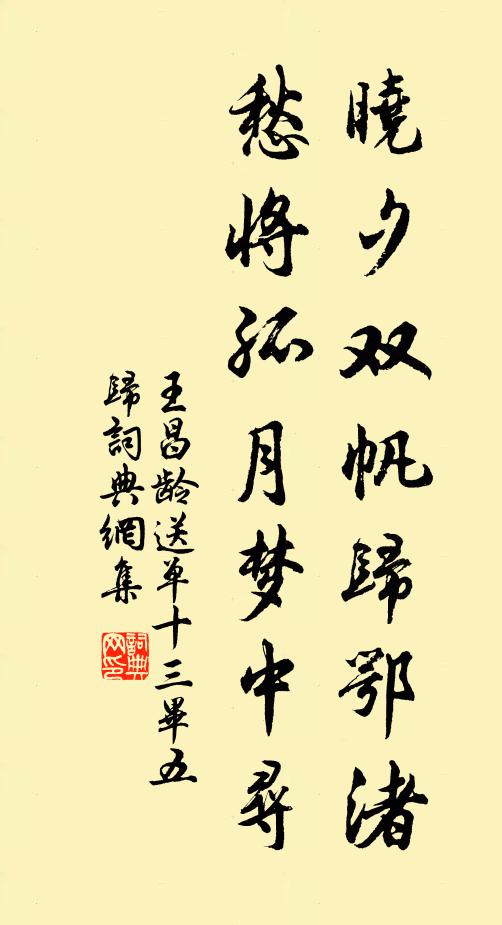 曉夕双帆歸鄂渚
愁將孤月梦中尋
王昌龄送单十三畢五
歸詞典網集
詞典网印